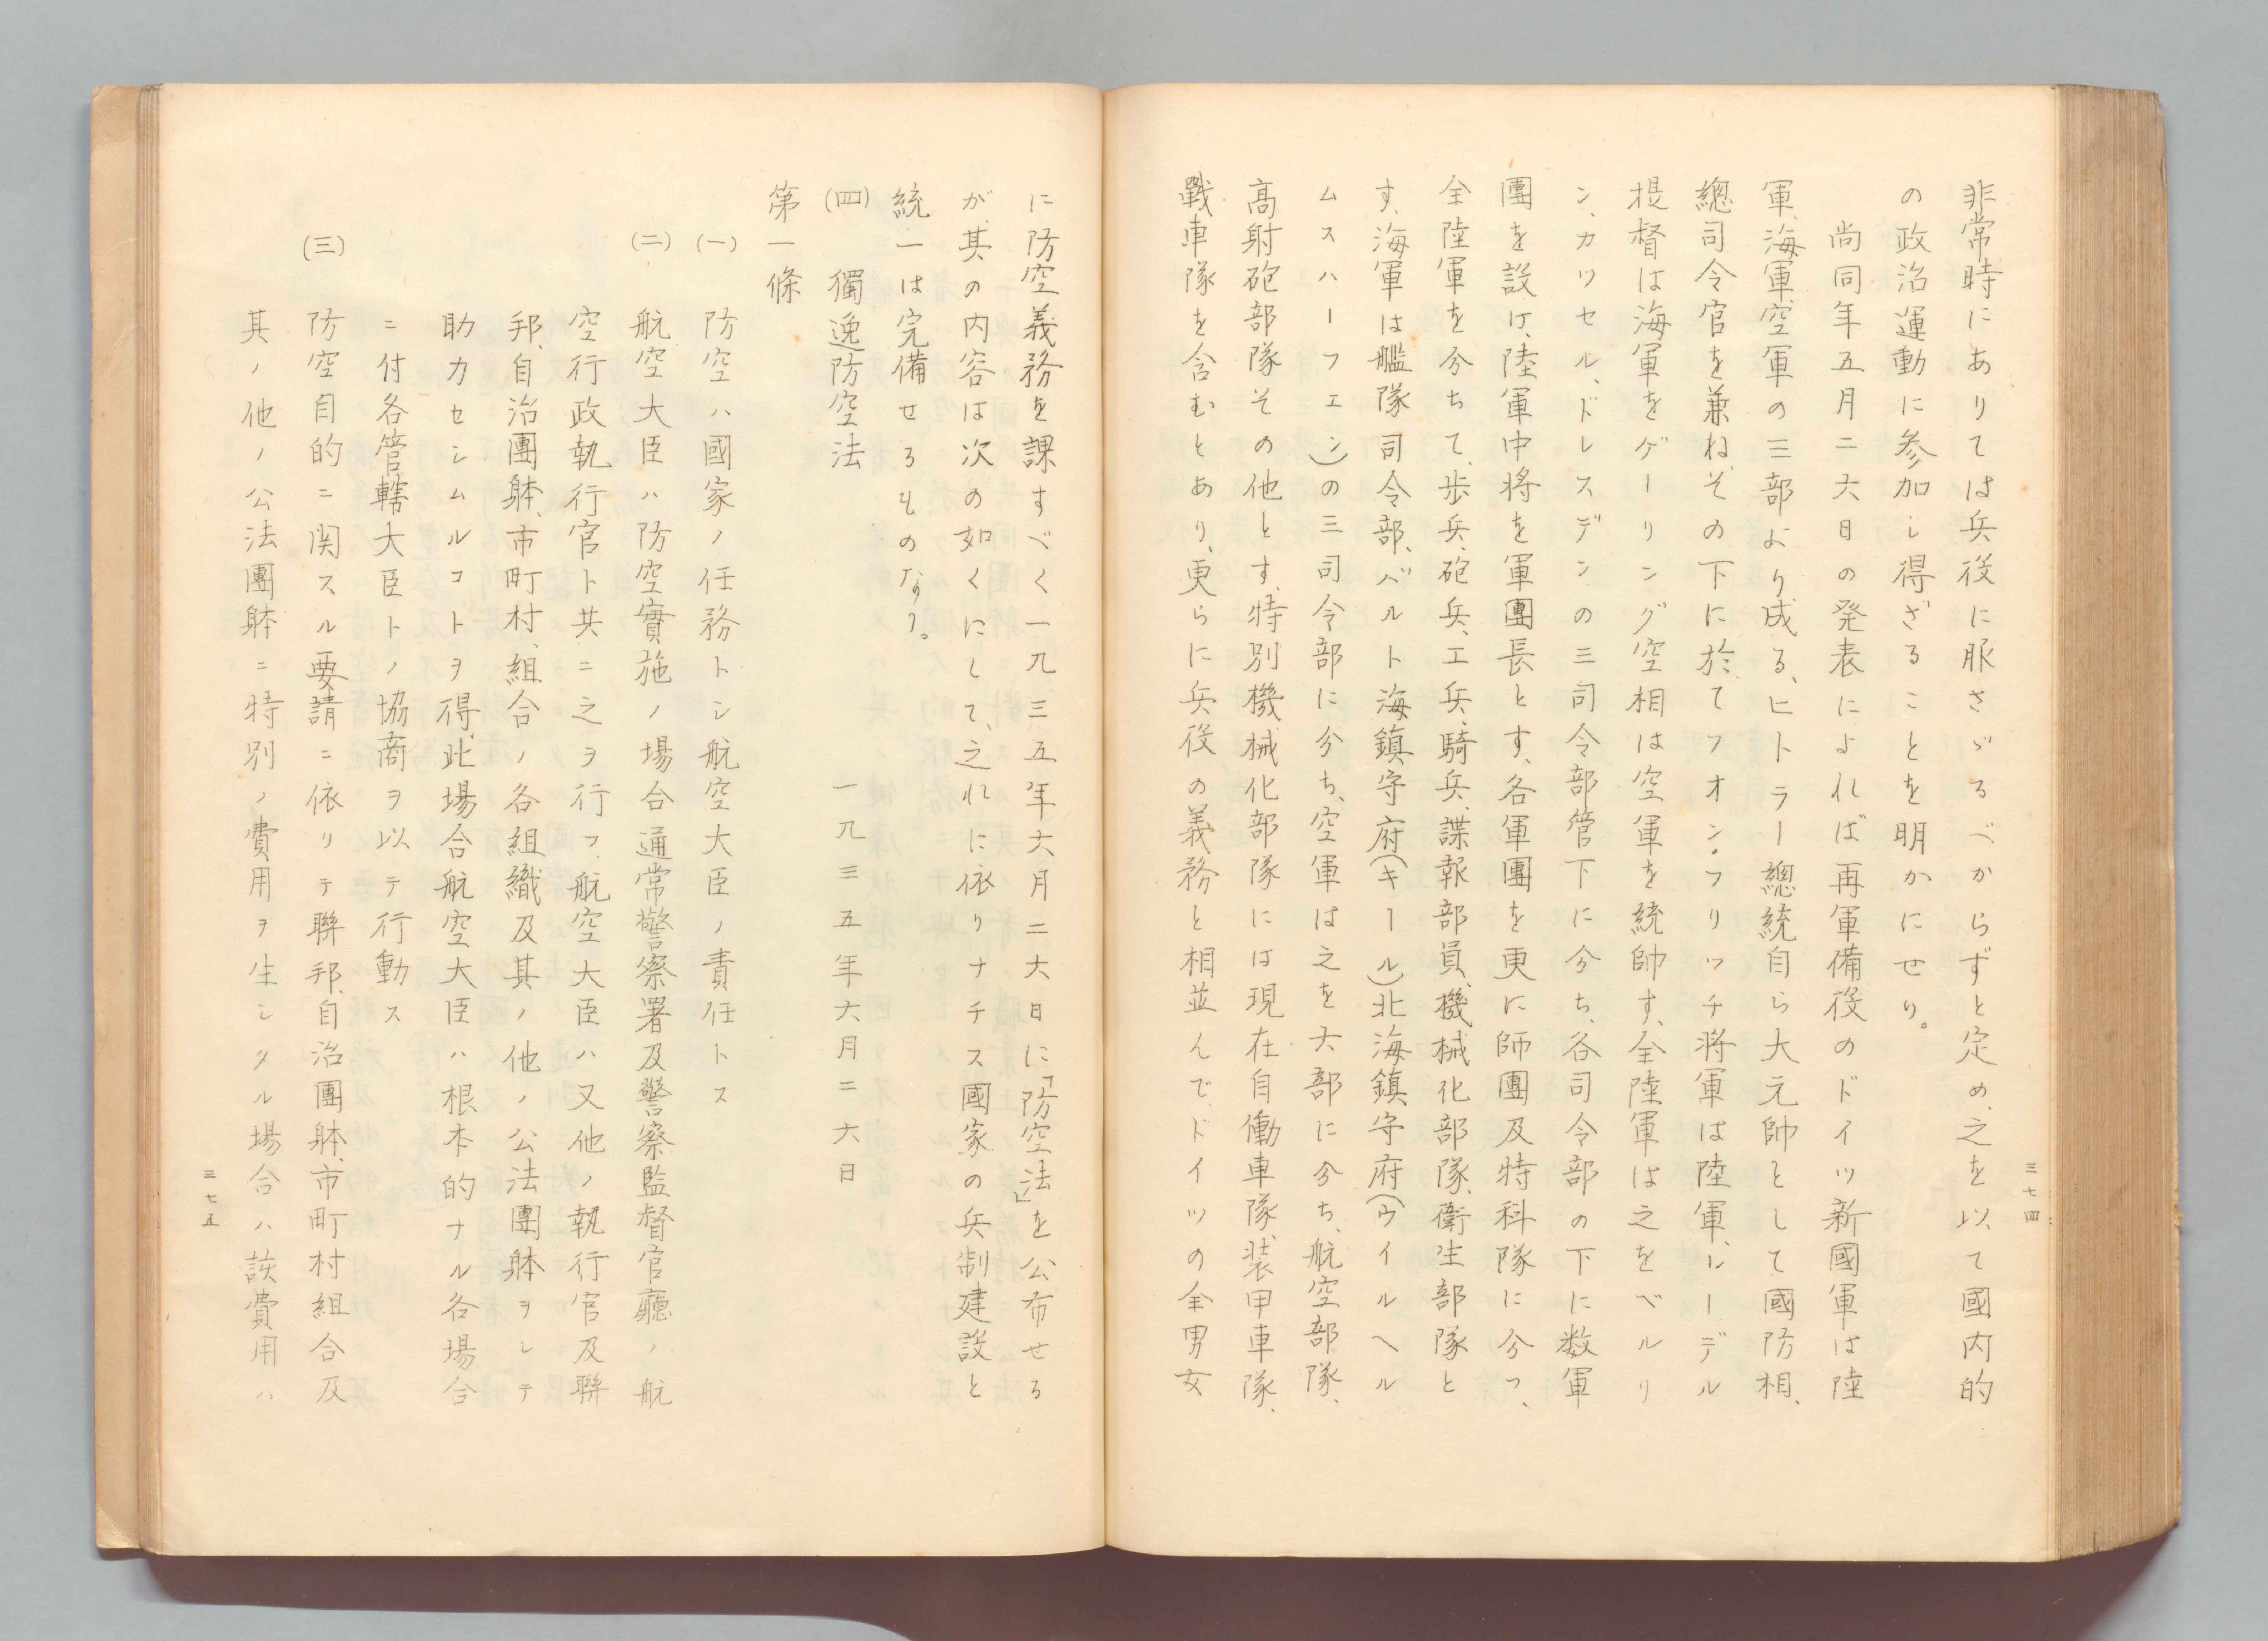 非常時にありては兵役に服さゞるべからずと定め、之を以て國内的
の政治運動に参加し得ざることを明かにせり。
尚同年五月二六日の発表によれば再軍備後のドイツ新國軍は陸
軍、海軍、空軍の三部より成る、ヒトラー總統自ら大元帥として國防相、
總司令官を兼ね、その下に於てフオン・フリッチ将軍は陸軍、レーデル
提督は海軍をゲーリング空相は空軍を統帥す、全陸軍は之をベルリ
ン、カッセル、ドレスデンの三司令部管下に分ち、各司令部の下に数軍
團を設け、陸軍中将を軍團長とす、各軍團を更に師團及特科隊に分つ、
全陸軍を分ちて、歩兵、砲兵、工兵、騎兵、諜報部員、機械化部隊、衛生部隊と
す、海軍は艦隊司令部、バルト海鎮守府(キール)北海鎮守府(ウイルヘル
ムスハーフェン)の三司令部に分ち、空軍は之を六部に分ち、航空部隊、
高射砲部隊その他とす、特別機械化部隊には現在自働車隊、装甲車隊、
戰車隊を含むとあり、更らに兵役の義務と相並んで、ドイツの全男女
三七四
に防空義務を課すべく一九三五年六月二六日に「防空法」を公布せる
が、其の内容は次の如くにして、之れに依りナチス國家の兵制建設と
統一は完備せるものなり。
(四) 獨逸防空法 一九三五年六月二六日
第一條
(一) 防空ハ國家ノ任務トシ航空大臣ノ責任トス
(二) 航空大臣ハ防空實施ノ場合通常警察署及警察監督官廳ノ航
空行政執行官ト共ニ之ヲ行フ、航空大臣ハ又他ノ執行官及聯
邦、自治團躰、市町村、組合ノ各組織及其ノ他ノ公法團躰ヲシテ
助力セシムルコトヲ得、此場合航空大臣ハ根本的ナル各場合
ニ付各管轄大臣トノ協商ヲ以テ行動ス
(三) 防空目的ニ関スル要請ニ依リテ聯邦、自治團躰、市町村組合及
其ノ他ノ公法團躰ニ特別ノ費用ヲ生シタル場合ハ該費用ハ
三七五